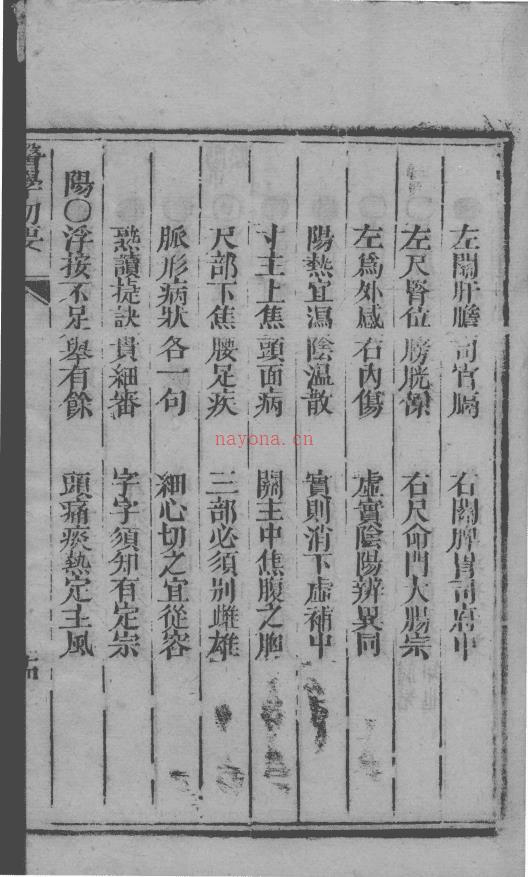 左關肝膽司官膈　右關脾胃司府中
左尺腎位膀胱深　右尺命門大腸宗
左爲外感右內傷　虛實陰陽辨異同
陽熱宜瀉陰温散　實則消下虛補中
寸主上焦頭面病　關主中焦腹之胸
尺部下焦腰足疾　三部必須别雌雄
脈形病狀各一句　細心切之宜從容
熟讀提訣貴細審　字字須知有定宗
陽〇浮按不足舉有餘　頭痛痰熱定主風
醫學切要
nayona.cn